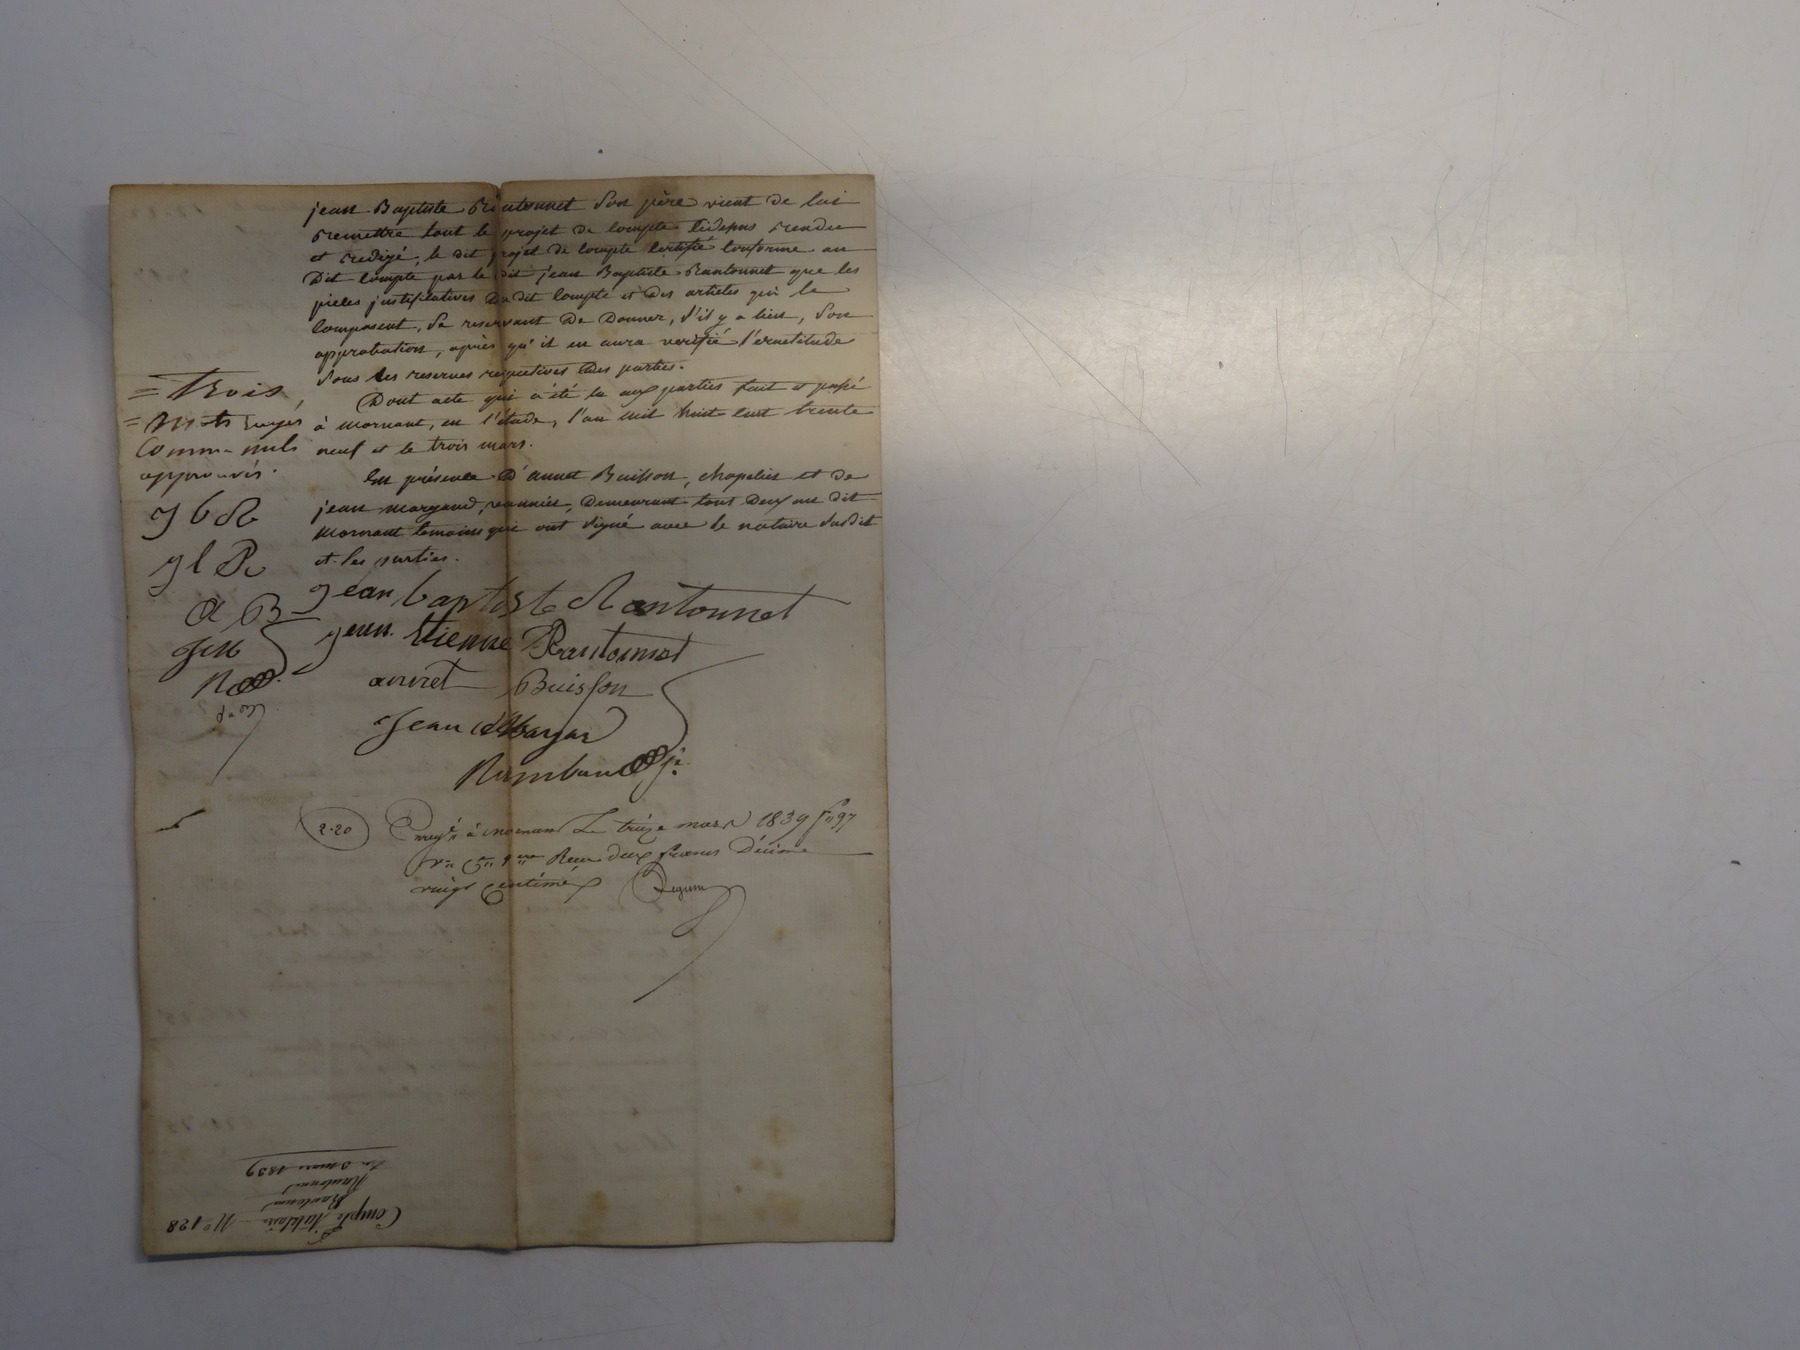 jean Baptiste Rantonnet son père vient de lui
remettre tant le projet de compte cidessus rendu
et redigé, le dit projet de compte certifié conforme au
dit compte par le dit jean Baptiste Rantonnet que les
pieces justificatives du dit compte et des articles qui le
composent, se reservant de donner, s'il y a lieu, son
approbation, après qu'il en aura verifié l'exactitude
sous les reserves respectives des parties.
Dont acte qui a été lu aux parties fait et passé
à Mornant, en l'étude, l'an mil huit cent trente
neuf et le trois mars.
En présence d'annet Buisson, chapelier et de
jean margand, demeurant tous deux au dit
Mornant temoins qui ont signé avec le notaire susdit
et les parties.
= Trois
= Mots rayés
comme nuls
approuvés.
j b R
j e R
a B
jean baptiste Rantonnet
jean Etienne Rantonnet
annet Buisson
Jean
2.20
Enregé à Mornant Le treize mars 1839 fo 97
Reçu deux francs Décime
vingt centimes
Compte N° 128
Rantonnet
Rantonnet
Du 3 mars 1839